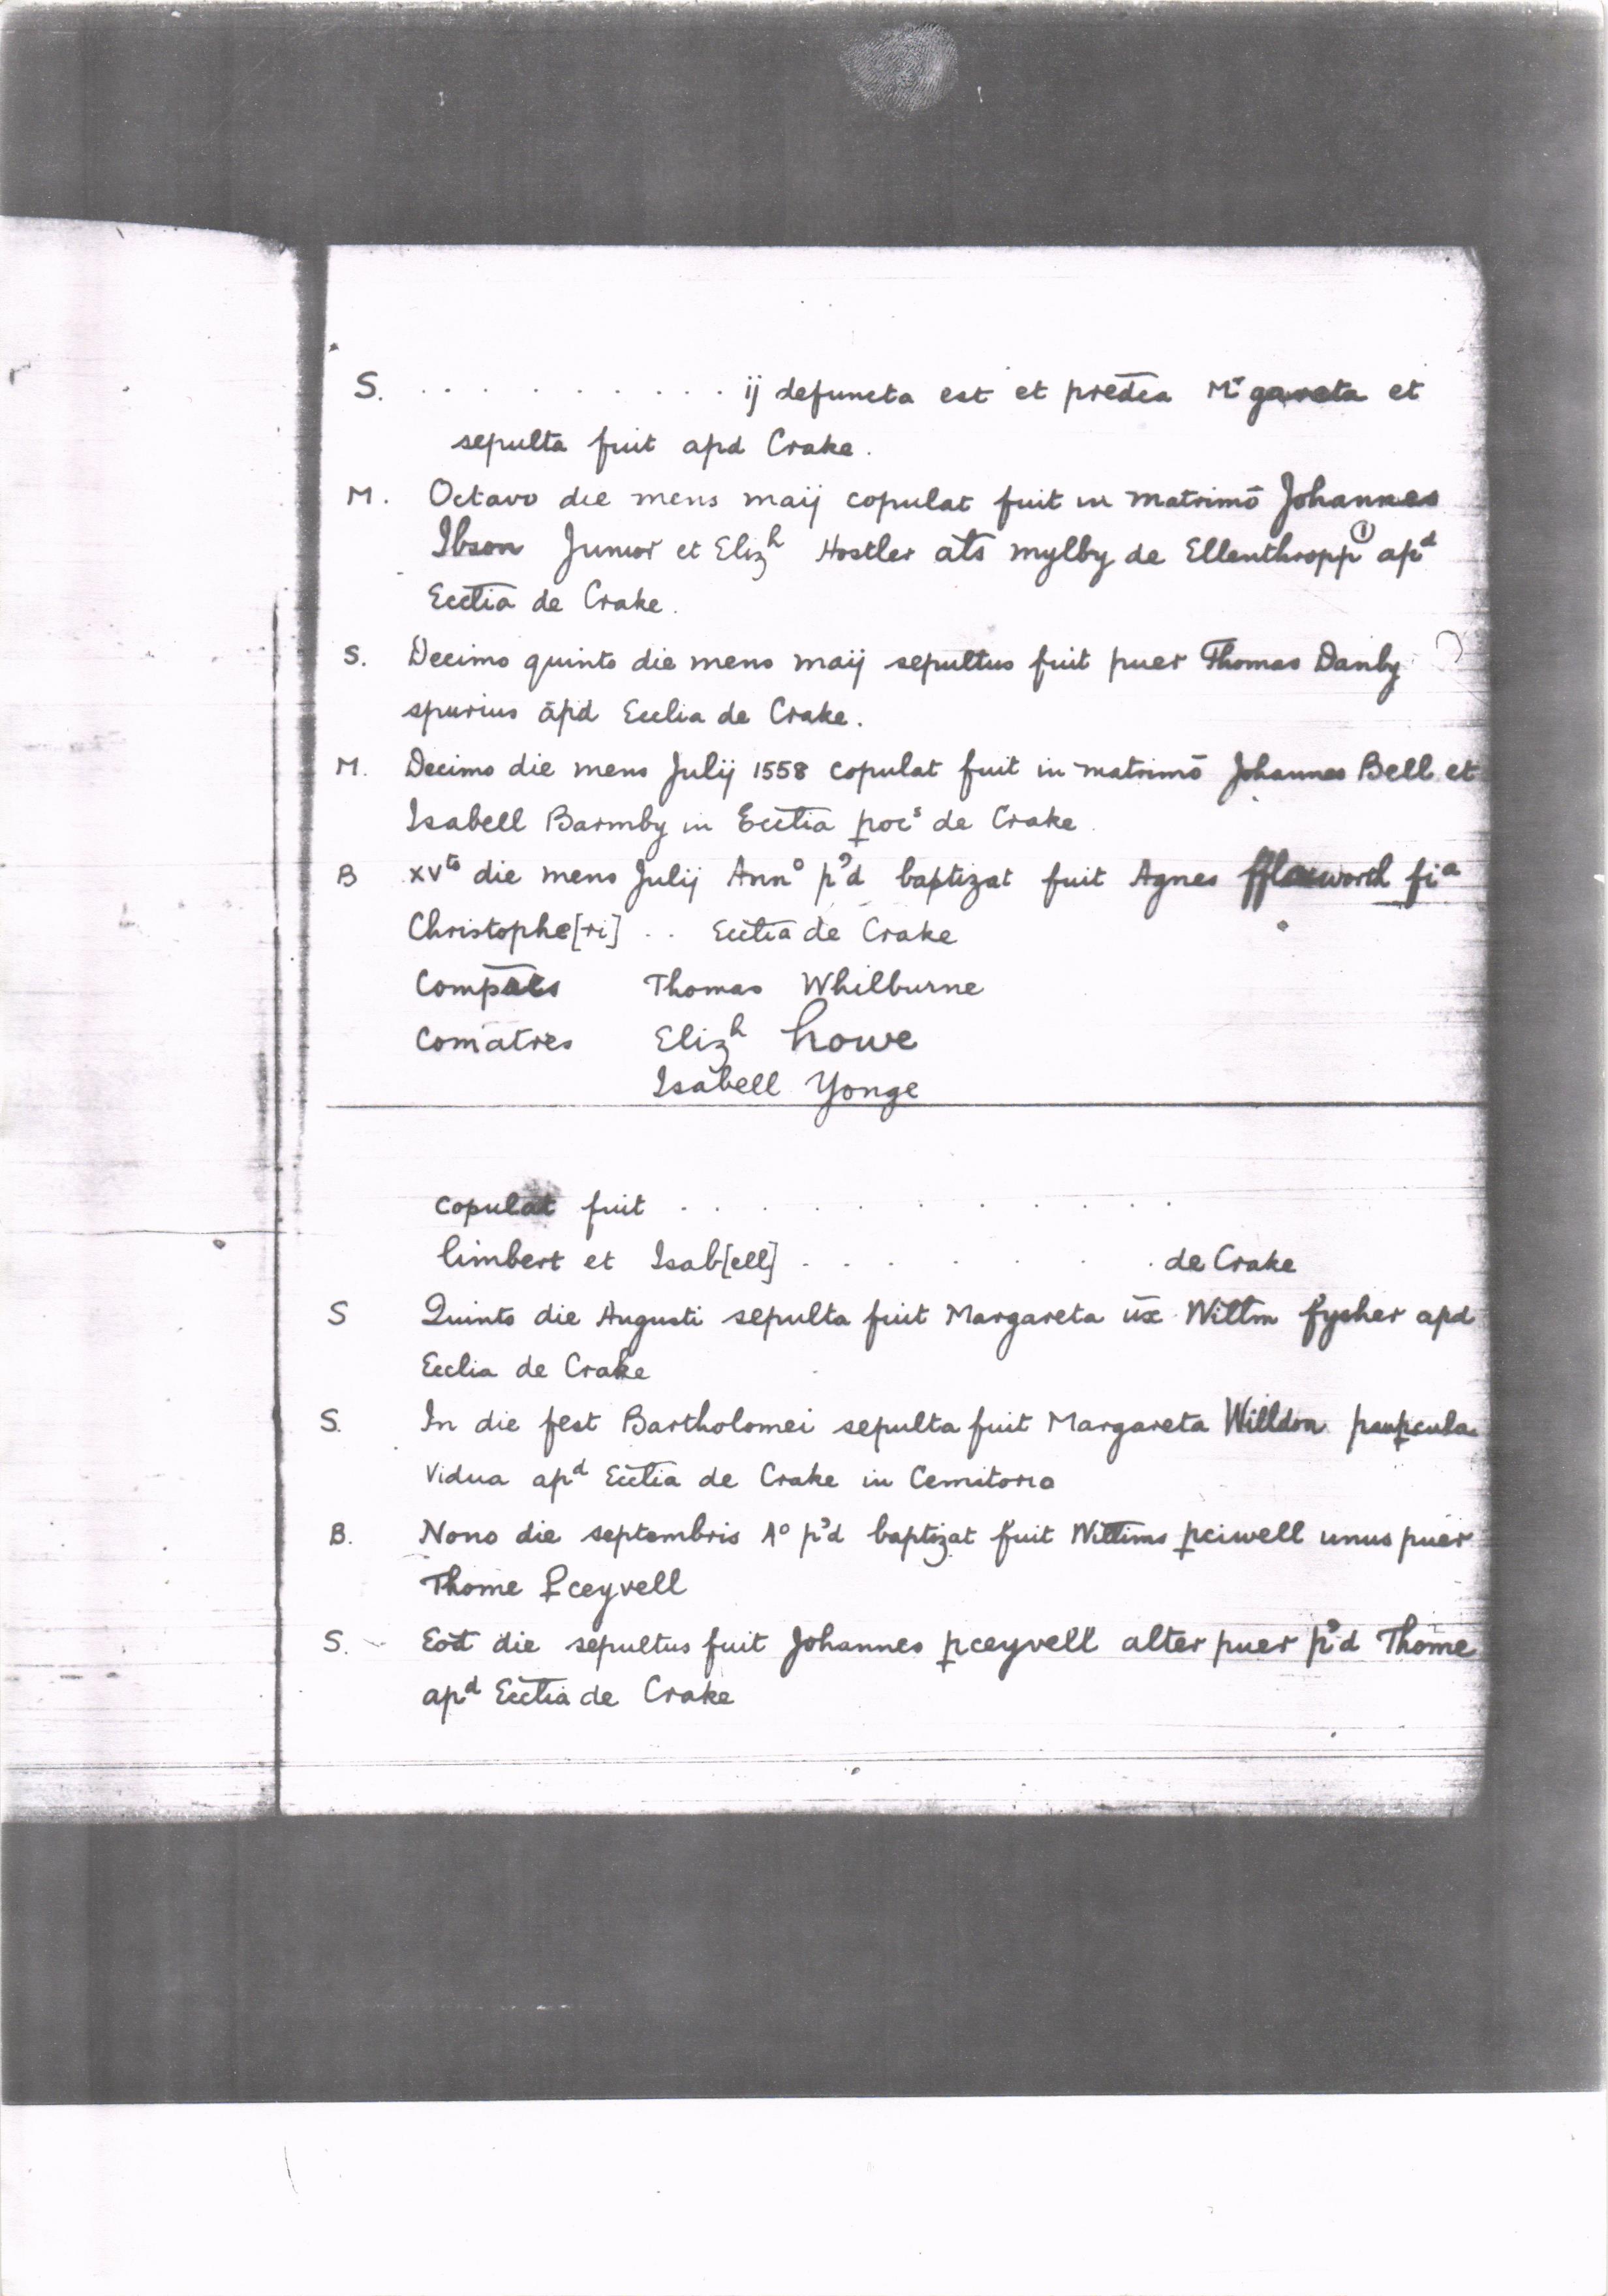 S. . . . . . . . . . . ij defuncta est et predc̄a Mʳgareta et
sepulta fuit apd Crake.
M. Octavo die mens maij copulat fuit in matrimō Johannes
Ibson Junior et Elizʰ Hostler al̄s mylby de Ellenthropp ① apᵈ
Eccl̄ia de Crake.
S. Decimo quinto die mens maij sepultus fuit puer Thomas Danby
spurius āpd Ecclia de Crake.
M. Decimo die mens Julij 1558 copulat fuit in matrimō Johannes Bell et
Isabell Barmby in Eccl̄ia ꝑocˢ de Crake
B xvᵗᵒ die mens Julij Annᵒ p'd baptizat fuit Agnes fflaxworth fiᵃ
Christophe[ri] . . Eccl̄ia de Crake
Comp̄res Thomas Whilburne
Com̄atres Elizʰ howe
Isabell Yonge
copulat fuit . . . . . . . . . . .
limbert et Isab[ell] . . . . . . . de Crake
S Quinto die Augusti sepulta fuit Margareta ūx Willm̄ fysher apd
Ecclia de Crake
S. In die fest Bartholomei sepulta fuit Margareta Willdon pauꝑcula
Vidua apᵈ Eccl̄ia de Crake in Cemitorio
B. Nono die septembris Aᵒ p'd baptizat fuit Will̄ims ꝑciwell unus puer
Thome ꝑceyvell
S. Eod̄ die sepultus fuit Johannes ꝑceyvell alter puer p'd Thome
apᵈ Eccl̄ia de Crake